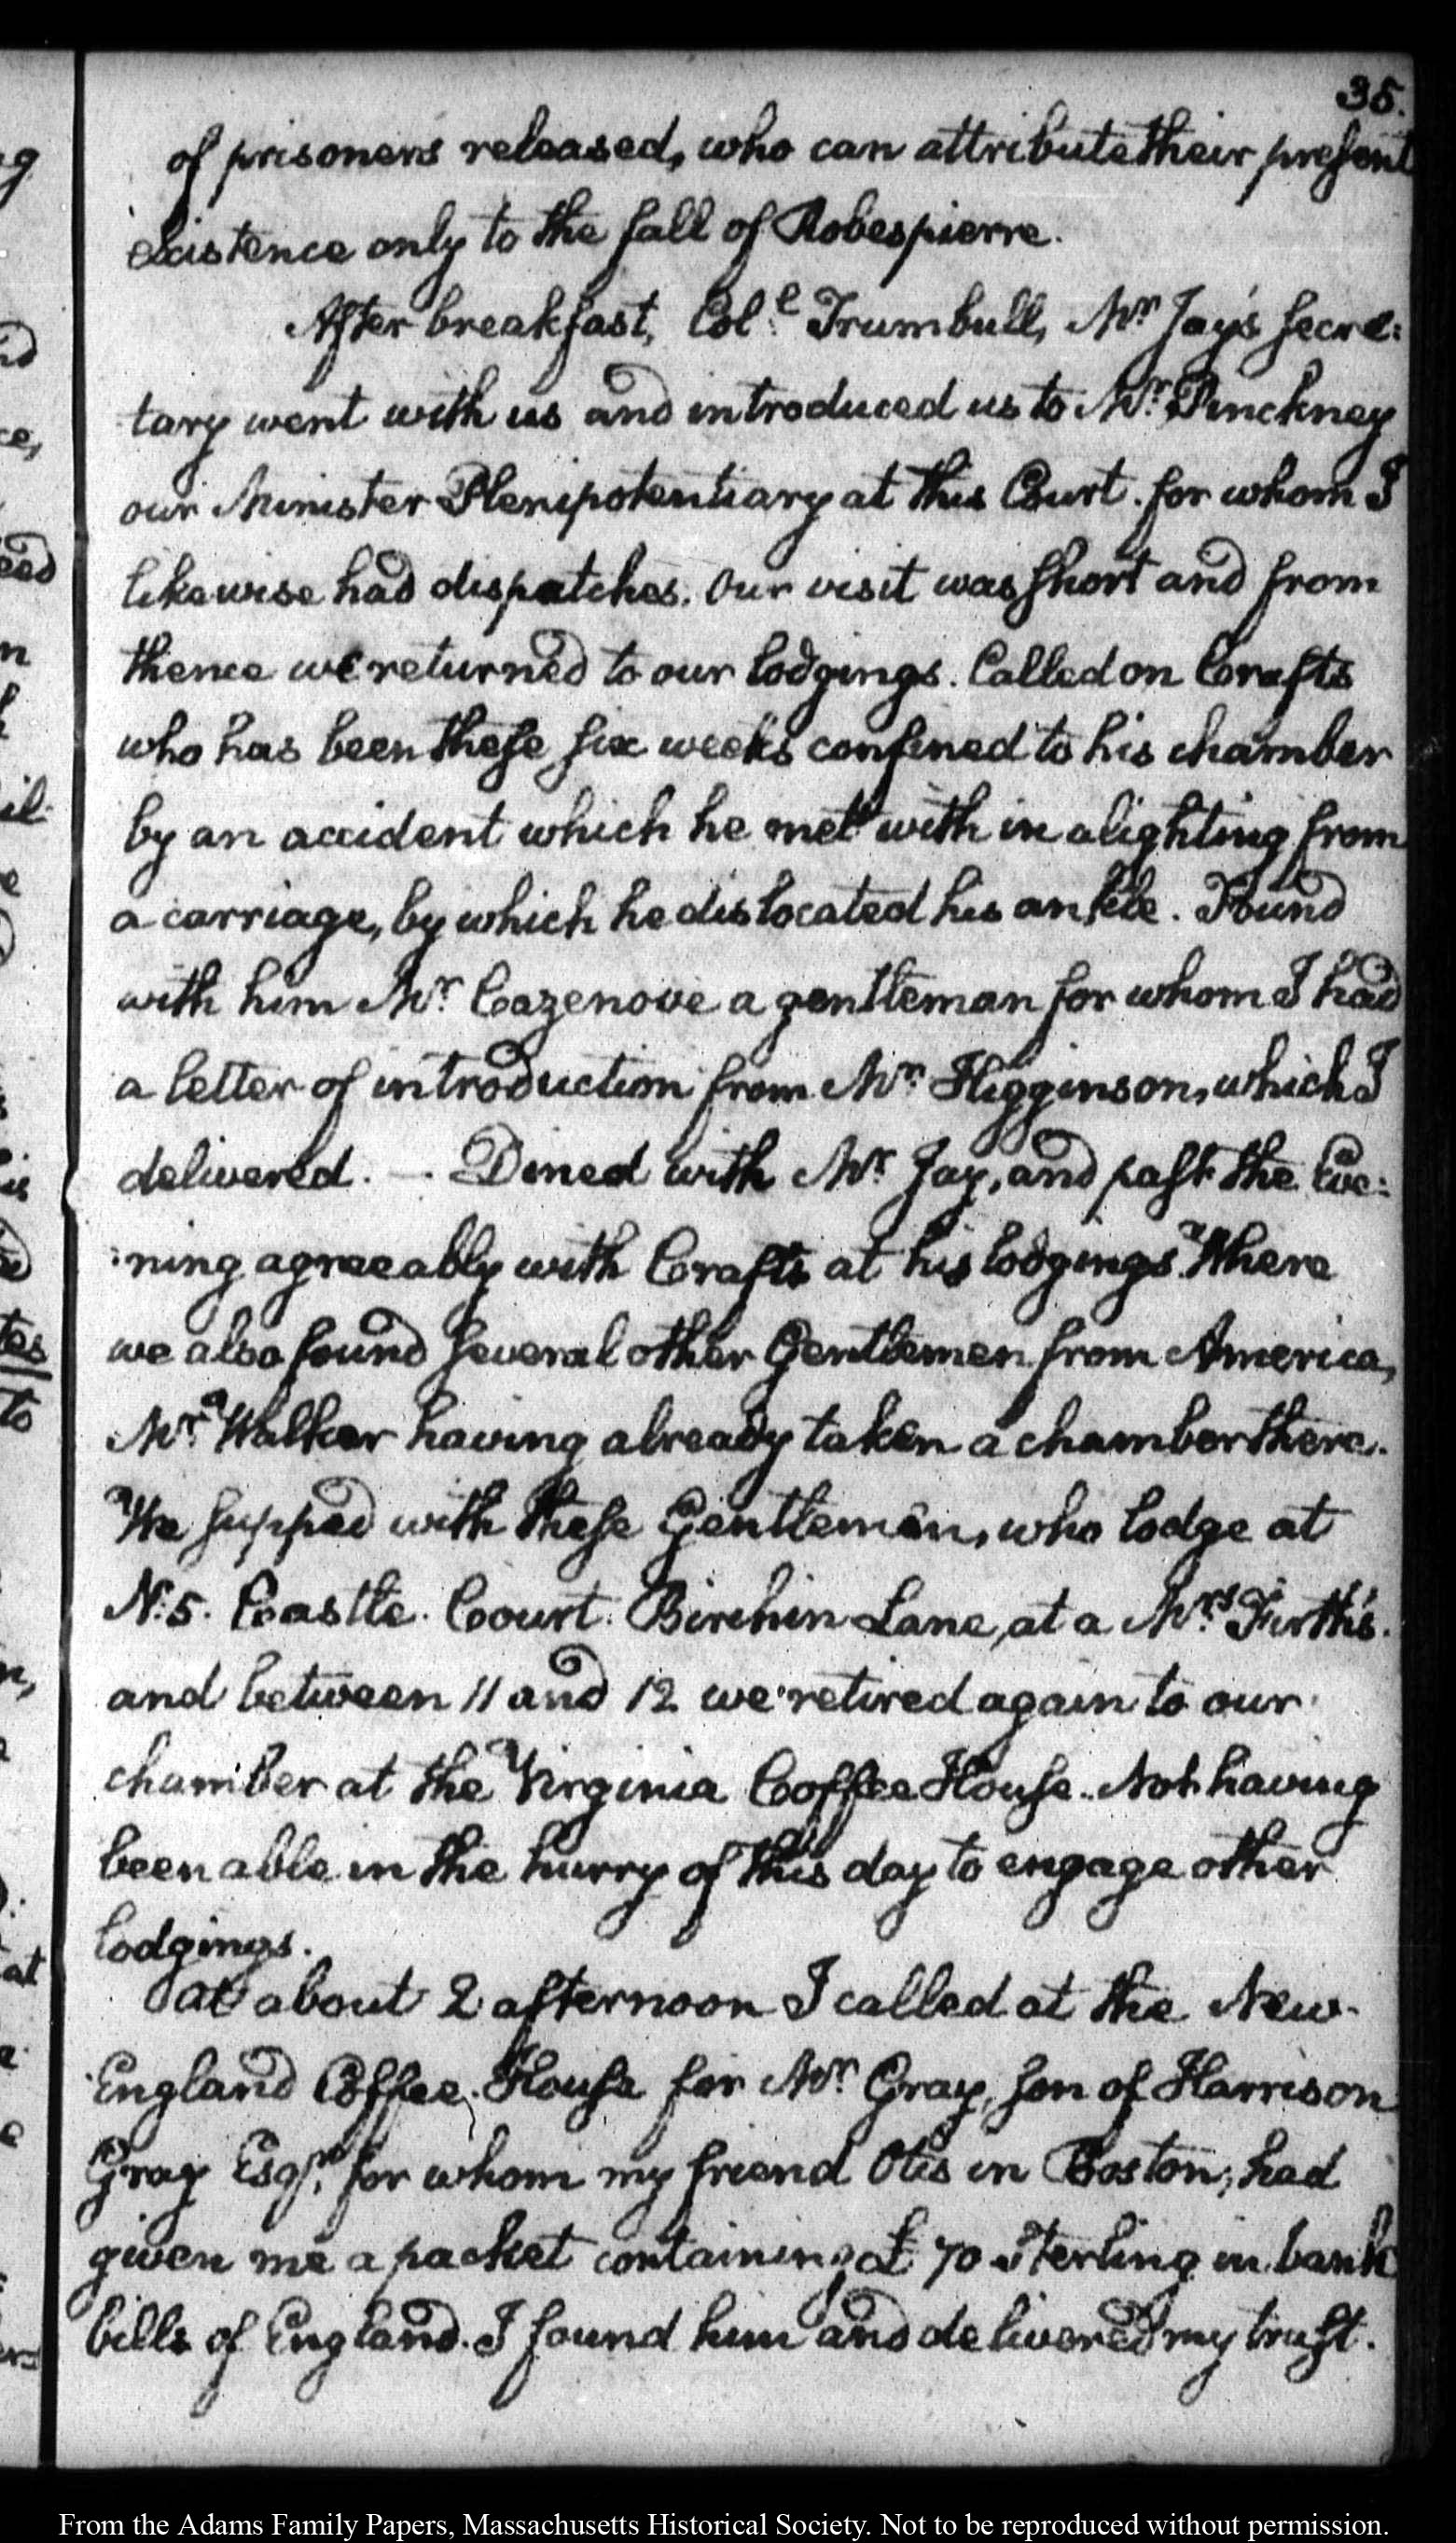 35.
of prisoners released, who can attribute their present
existence only to the fall of Robespierre.
After breakfast, Col.l Trumbull, Mr Jay's secre:
tary went with us and introduced us to Mr. Pinckney
our Minister Plenipotentiary at this Court. for whom I
likewise had dispatches. Our visit was short and from
thence we returned to our lodgings. Called on Crafts
who has been these six weeks confined to his chamber
by an accident which he met with in alighting from
a carriage, by which he dislocated his ankle. Found
with him Mr. Cazenove a gentleman for whom I had
a letter of introduction from Mr. Higginson, which I
delivered. — Dined with Mr. Jay, and past the Eve:
:ning agreeably with Crafts at his lodgings. Where
we also found several other Gentlemen from America,
Mr. Walker having already taken a chamber there.
We supped with these Gentlemen, who lodge at
N: 5. Castle. Court. Birchin Lane, at a Mrs. Firth's.
and between 11 and 12 we retired again to our
chamber at the Virginia Coffee House. Not having
been able in the hurry of this day to engage other
lodgings.
At about 2 afternoon I called at the New-
England Coffee, House for Mr Gray, son of Harrison
Gray Esqr. for whom my friend Otis in Boston, had
given me a packet containing £ 70 Sterling in bank
bills of England. I found him and delivered my trust.
From the Adams Family Papers, Massachusetts Historical Society. Not to be reproduced without permission.